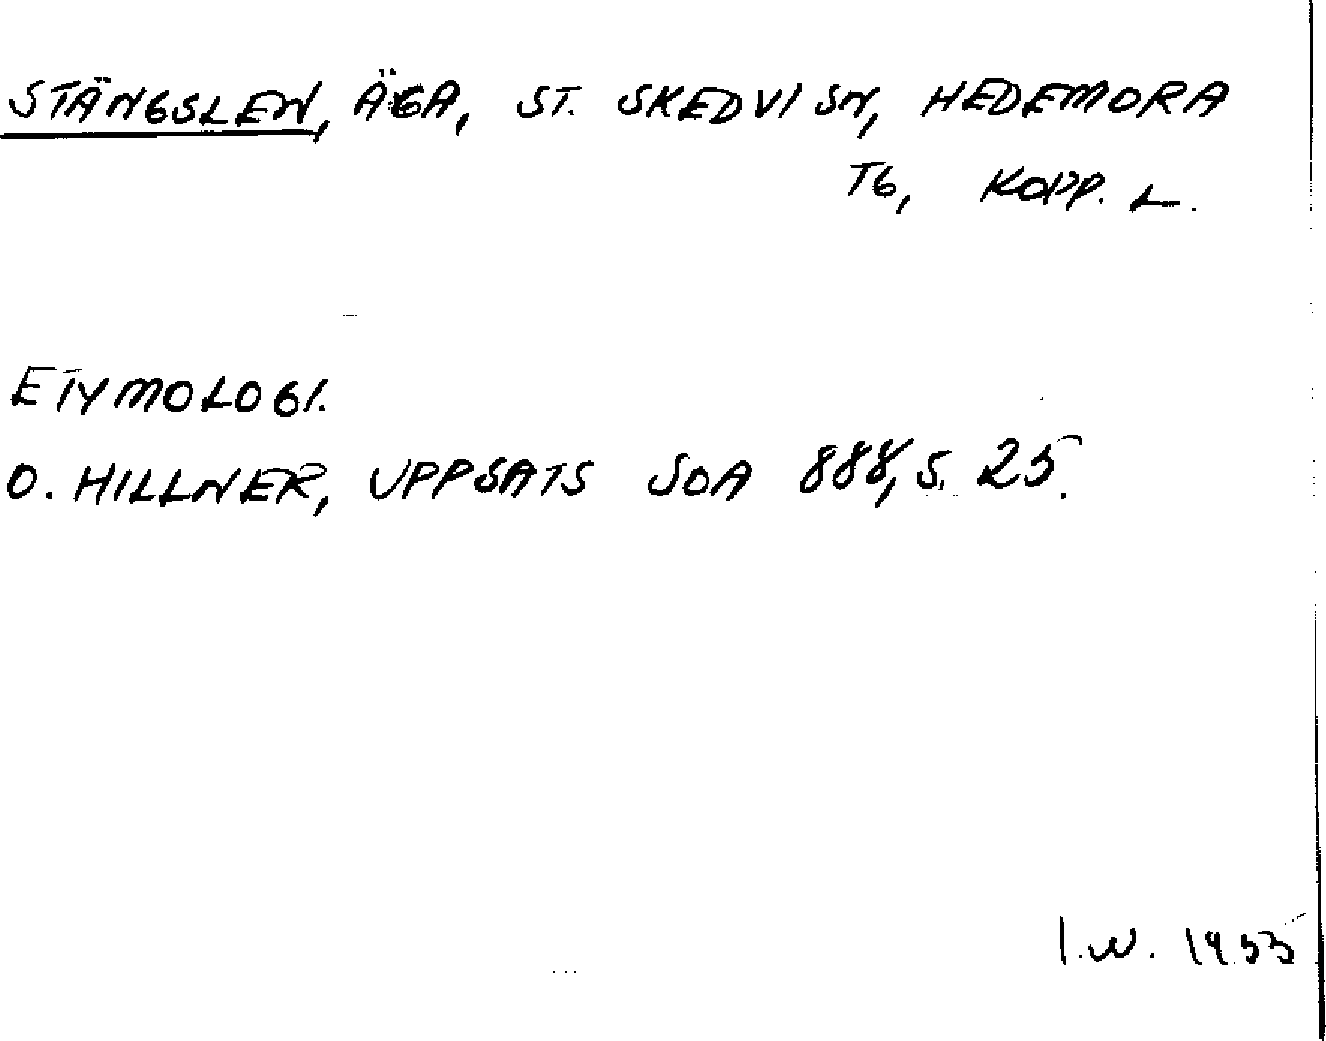 STÄNGSLEN, ÄGA, ST. SKEDVI SN, HEDEMORA
TG, KOPP. L.
ETYMOLOGI.
O. HILLNER, UPPSATS SOA 888, S. 25.
I.W. 1955